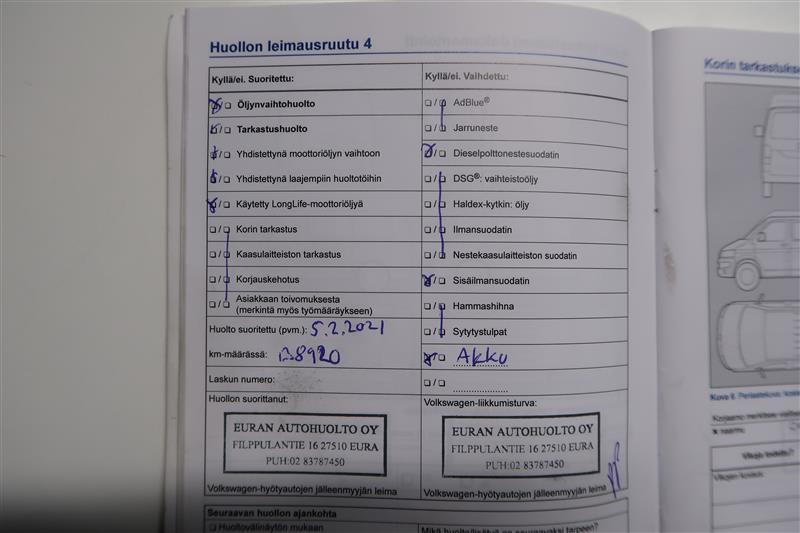 Huollon leimausruutu 4
Kyllä/ei. Suoritettu:
Öljynvaihtohuolto
Tarkastushuolto
Yhdistettynä moottoriöljyn vaihtoon
Yhdistettynä laajempiin huoltotöihin
Käytetty LongLife-moottoriöljyä
Korin tarkastus
Kaasulaitteiston tarkastus
Korjauskehotus
Asiakkaan toivomuksesta
(merkintä myös työmääräykseen)
Huolto suoritettu (pvm.): 5.2.2021
km-määrässä:
Laskun numero:
Huollon suorittanut:
EURAN AUTOHUOLTO OY
FILPPULANTIE 16 27510 EURA
PUH:02 83787450
Volkswagen-hyötyautojen jälleenmyyjän leima
Seuraavan huollon ajankohta
Huoltovälinäytön mukaan
Kyllä/ei. Vaihdettu:
AdBlue®
Jarruneste
Dieselpolttonestesuodatin
DSG®: vaihteistoöljy
Haldex-kytkin: öljy
Ilmansuodatin
Nestekaasulaitteiston suodatin
Sisäilmansuodatin
Hammashihna
Sytytystulpat
Akku
Volkswagen-liikkumisturva:
EURAN AUTOHUOLTO OY
FILPPULANTIE 16 27510 EURA
PUH:02 83787450
Volkswagen-hyötyautojen jälleenmyyjän leima
Mikä huolto/lisätyö on seuraavaksi tarpeen?
Korin tarkastukse